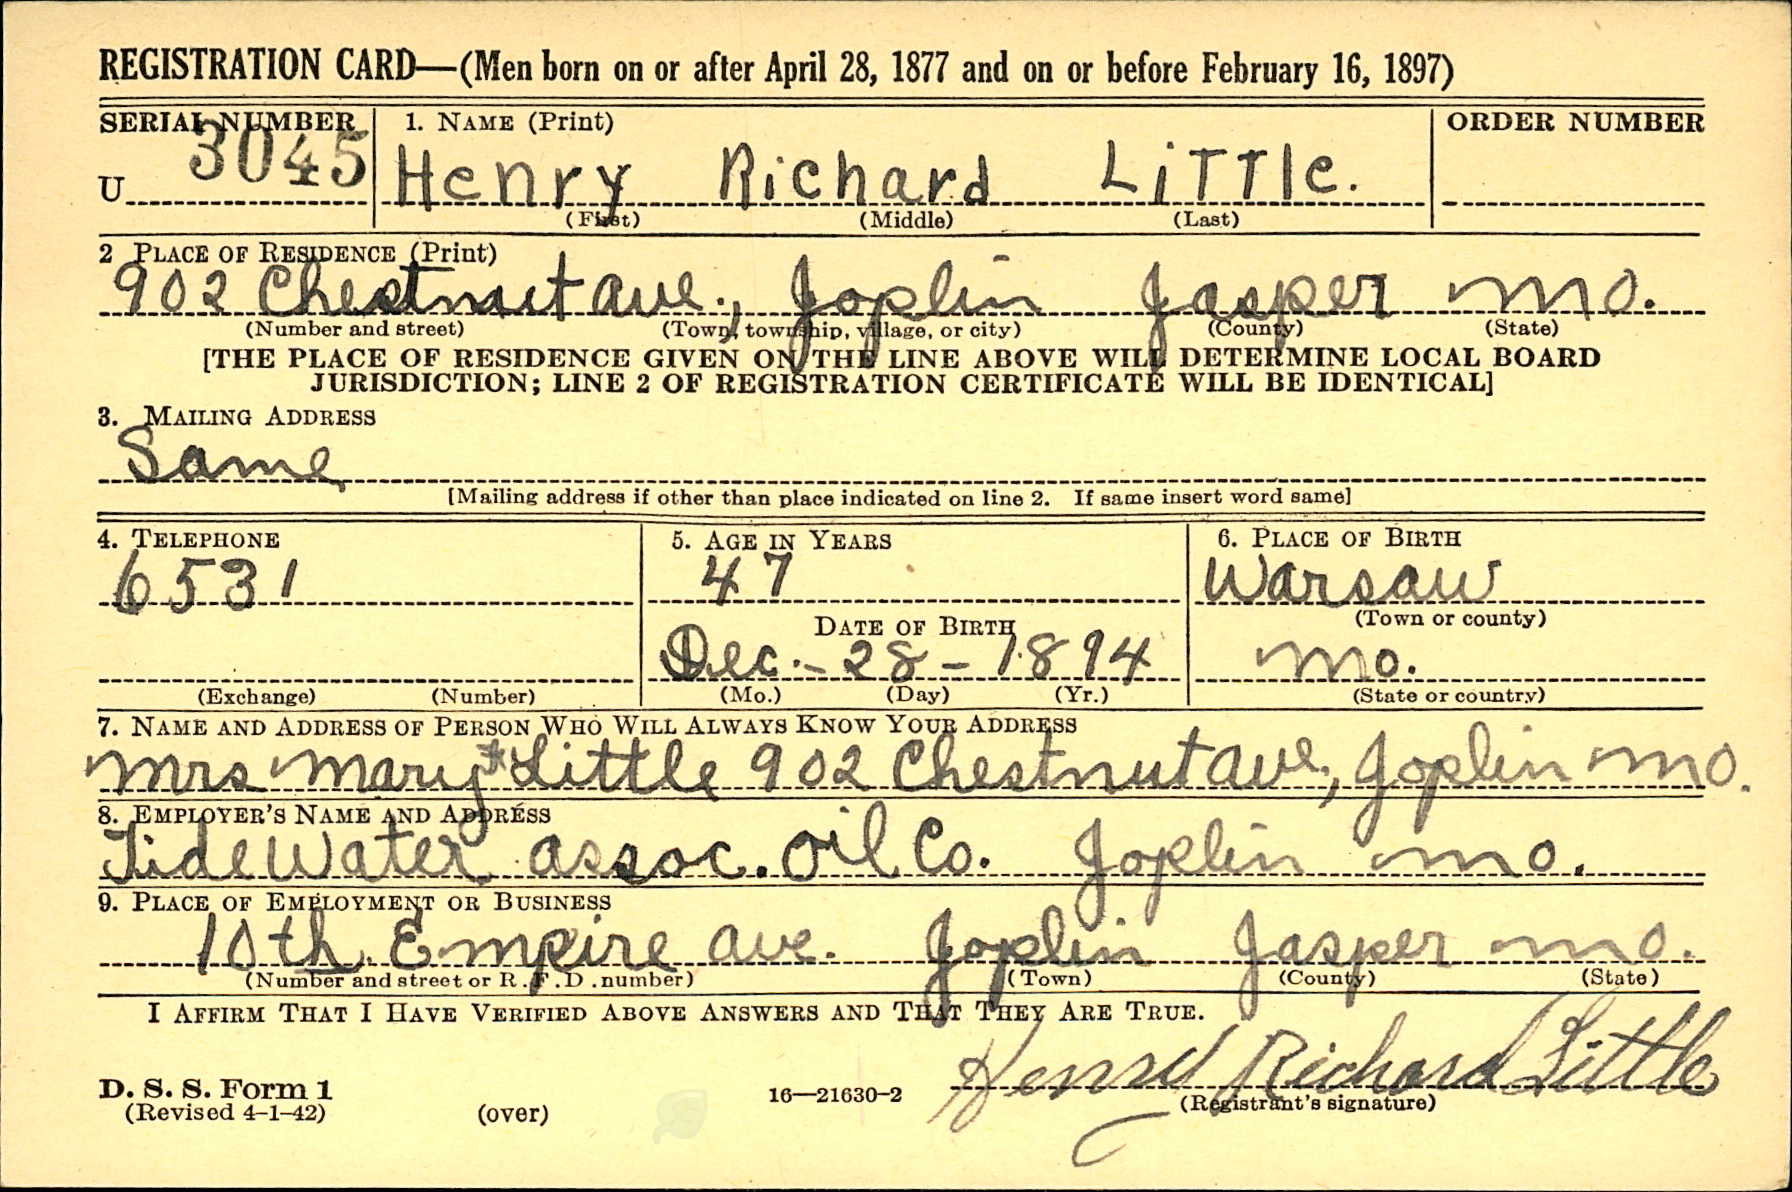 REGISTRATION CARD—(Men born on or after April 28, 1877 and on or before February 16, 1897)
SERIAL NUMBER 1. NAME (Print) ORDER NUMBER
U 3045 Henry Richard Little.
(First) (Middle) (Last)
2 PLACE OF RESIDENCE (Print)
902 Chestnut ave., Joplin Jasper Mo.
(Number and street) (Town, township, village, or city) (County) (State)
[THE PLACE OF RESIDENCE GIVEN ON THE LINE ABOVE WILL DETERMINE LOCAL BOARD
JURISDICTION; LINE 2 OF REGISTRATION CERTIFICATE WILL BE IDENTICAL]
3. MAILING ADDRESS
Same
[Mailing address if other than place indicated on line 2. If same insert word same]
4. TELEPHONE 5. AGE IN YEARS 6. PLACE OF BIRTH
6531 47 Warsaw
(Town or county)
DATE OF BIRTH
Dec.-28-1894 Mo.
(Exchange) (Number) (Mo.) (Day) (Yr.) (State or country)
7. NAME AND ADDRESS OF PERSON WHO WILL ALWAYS KNOW YOUR ADDRESS
Mrs Mary Little 902 Chestnut ave, Joplin Mo.
8. EMPLOYER'S NAME AND ADDRESS
Tide Water assoc. Oil Co. Joplin Mo.
9. PLACE OF EMPLOYMENT OR BUSINESS
10th. Empire ave. Joplin Jasper Mo.
(Number and street or R.F.D.number) (Town) (County) (State)
I AFFIRM THAT I HAVE VERIFIED ABOVE ANSWERS AND THAT THEY ARE TRUE.
Henry Richard Little
D. S. S. Form 1 16—21630-2
(Revised 4-1-42) (over) (Registrant's signature)